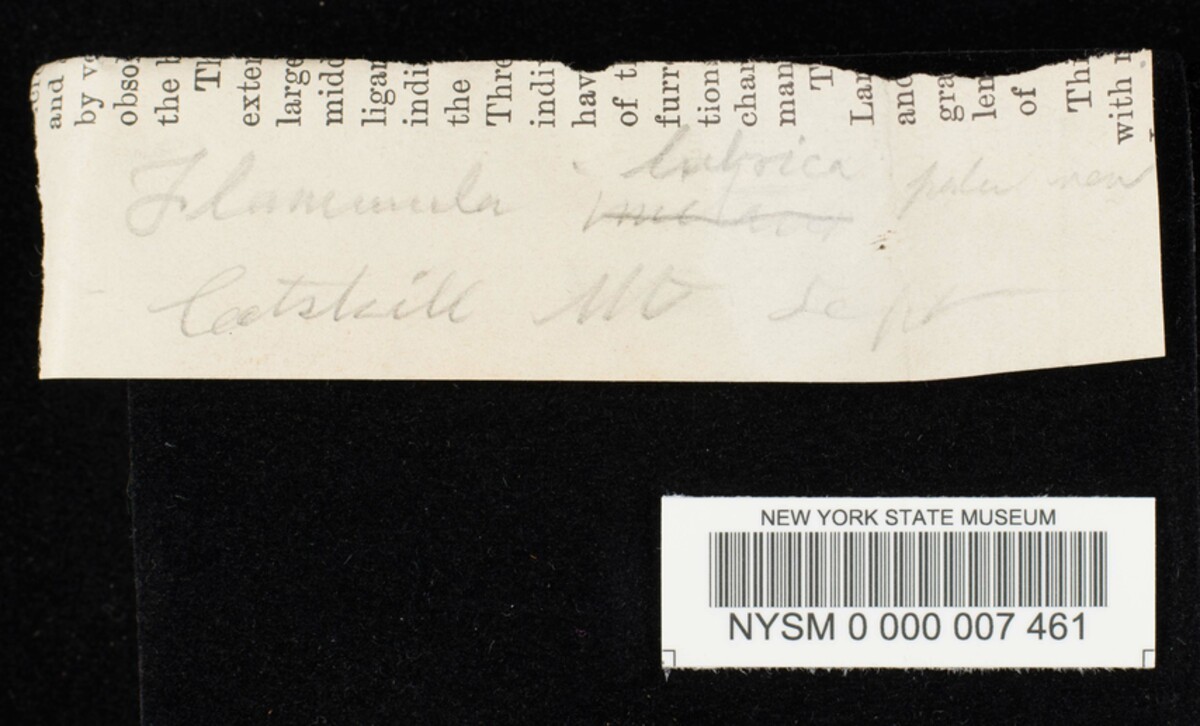 and
by ve
obso
the b
Th
exten
large
midd
ligan
indi
the
Thre
indi
hav
of t
furr
tion
chan
man
T
Lar
and
gra
len
of
Thi
with
lubrica
Flammula
Catskill Mt Sept
NEW YORK STATE MUSEUM
NYSM 0 000 007 461